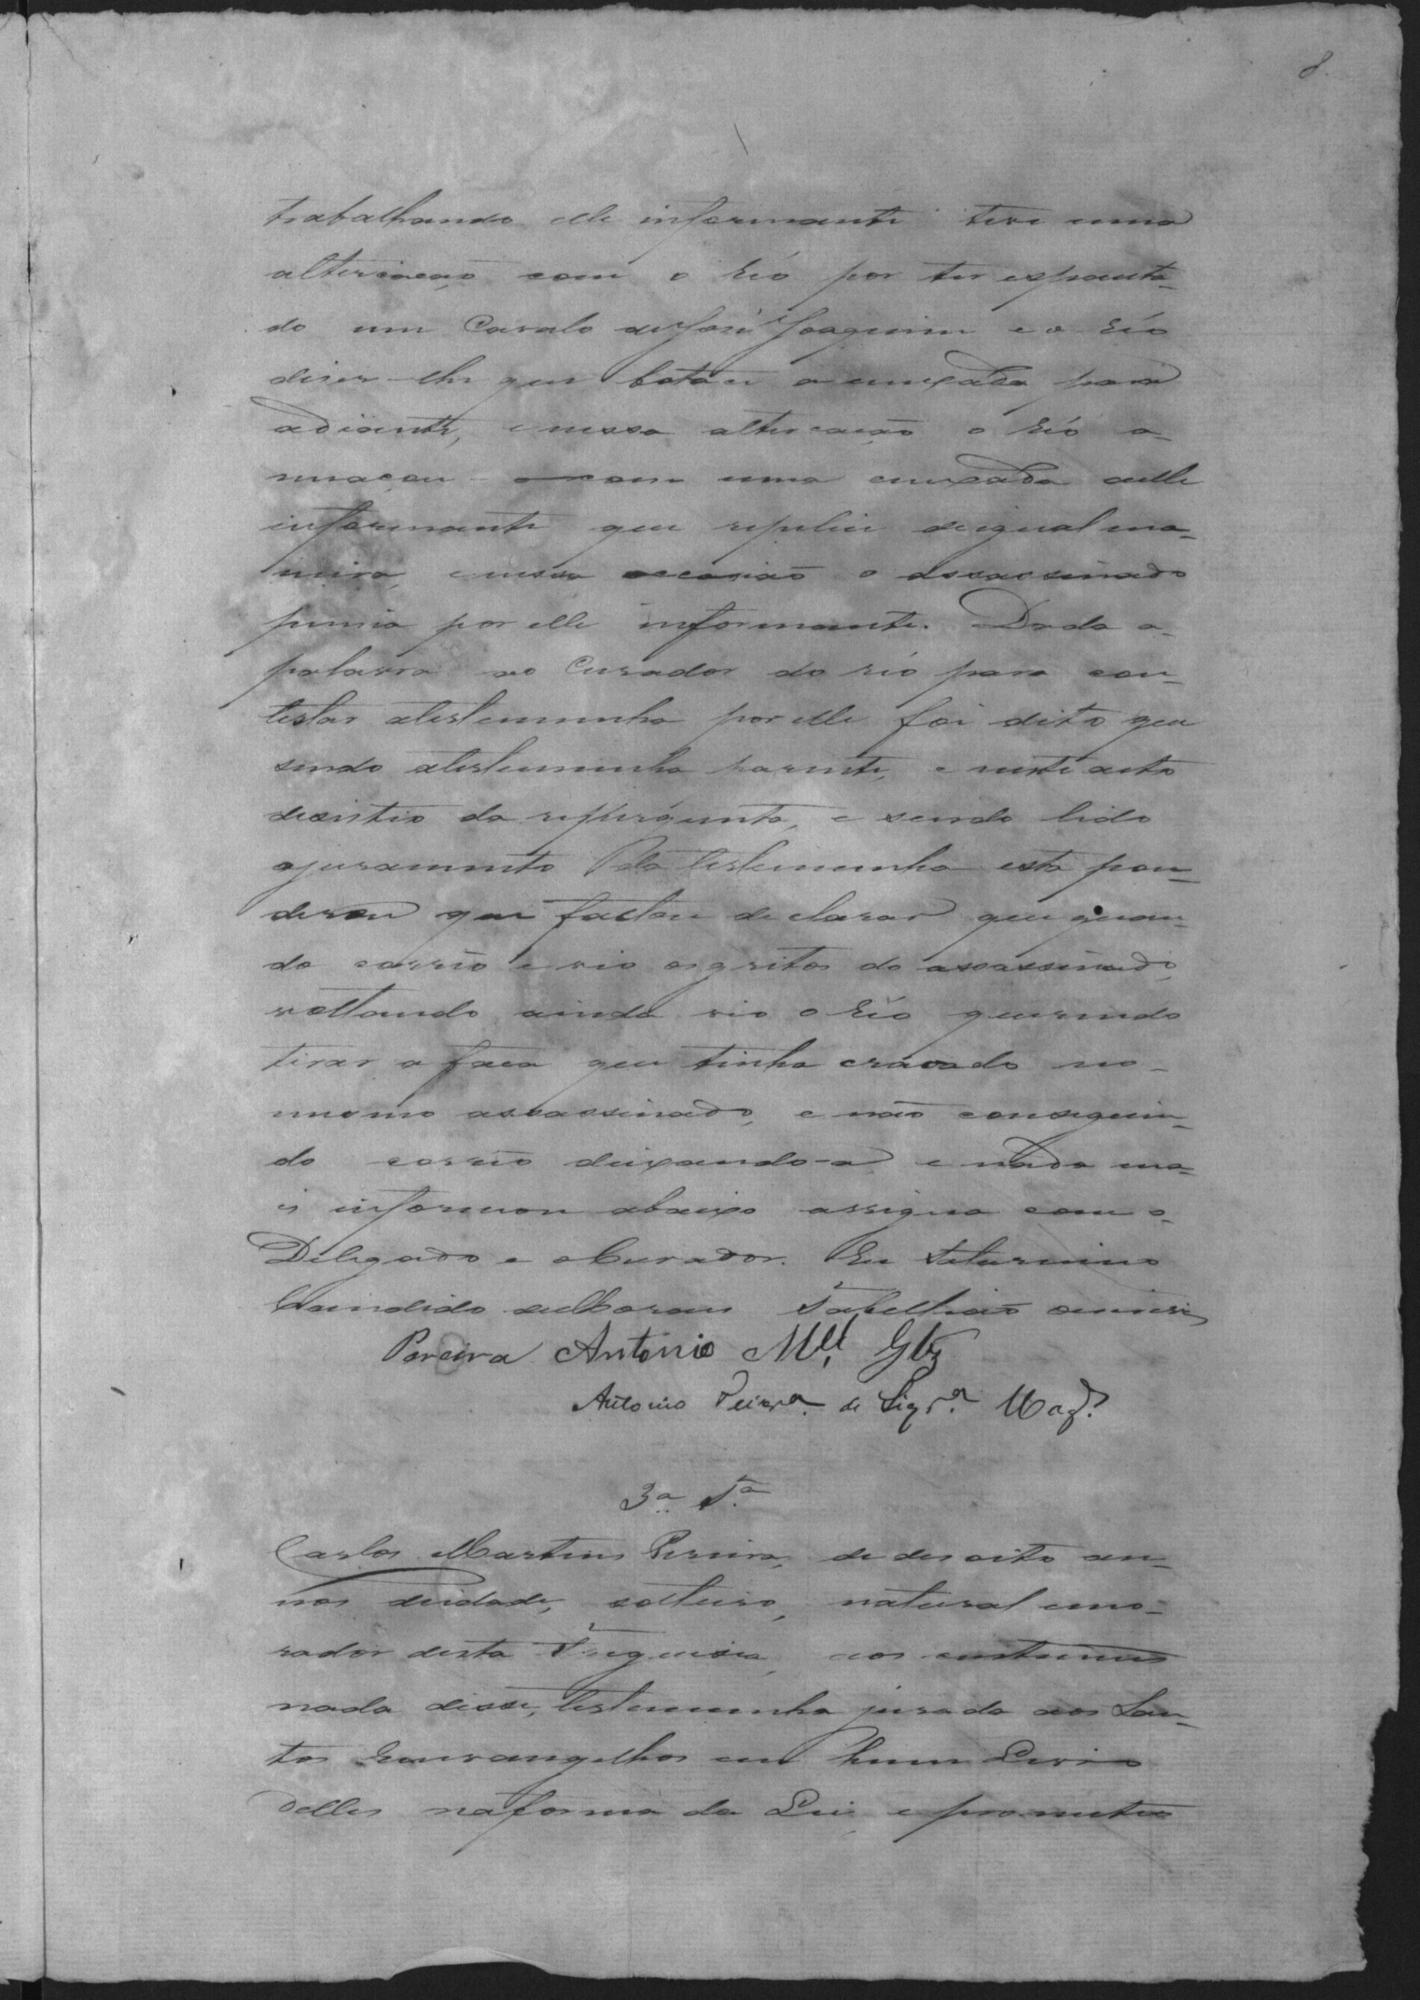 8.
trabalhando elle informante teve uma
altercação com o Réo por ter espanta-
do um Cavalo de José Joaquim e o Réo
diser-lhe que botou a enxada para
adiante, e nessa altercação o Réo a-
meaçou com uma enxada a elle
informante que repelio de igual ma-
neira, e nessa occasião o assassinado
punia por elle informante. Dada a
palavra ao Curador do réo para con-
testar atestemunha por elle foi dito que
sendo atestemunha parente, e neste acto
desistio da repergunta, e sendo lido
ojuramento da testemunha esta pon-
derou que faltou declarar que quan-
do corrêo e vio os gritos do assassinado,
voltando ainda vio o Réo querendo
tirar a faca que tinha cravado no-
mesmo assassinado, e não conseguin-
do corrêo deixando-a e nada ma-
is informou abaixo assigna com o
Delegado e o Curador. Eu Saturnino
Candido Tabellião
Pereira Antonio Mel. Glz
Antonio Teixra. de Siqra. Mag.
3.a T.a
Carlos Martins Pereira, de desoito an-
nos deidade, solteiro, natural emo-
rador desta Freguesia, aos custumes
nada disse, testemunha jurada aos San-
tos Evangelhos em hum Livro
delles naforma da Lei, e prometeo